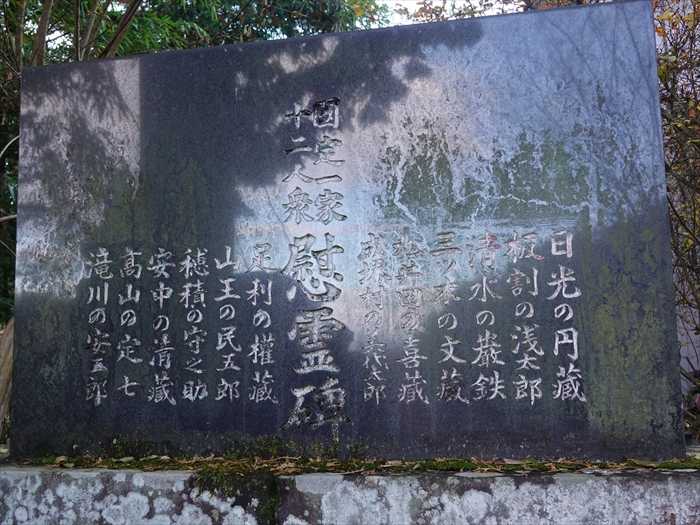 日光の円蔵
板割の浅太郎
清水の巌鉄
三ツ木の文蔵
松井田の喜蔵
国定一家
十二人衆
慰霊碑
足利の權蔵
山王の民五郎
穂積の守之助
安中の清蔵
高山の定七
滝川の安五郎